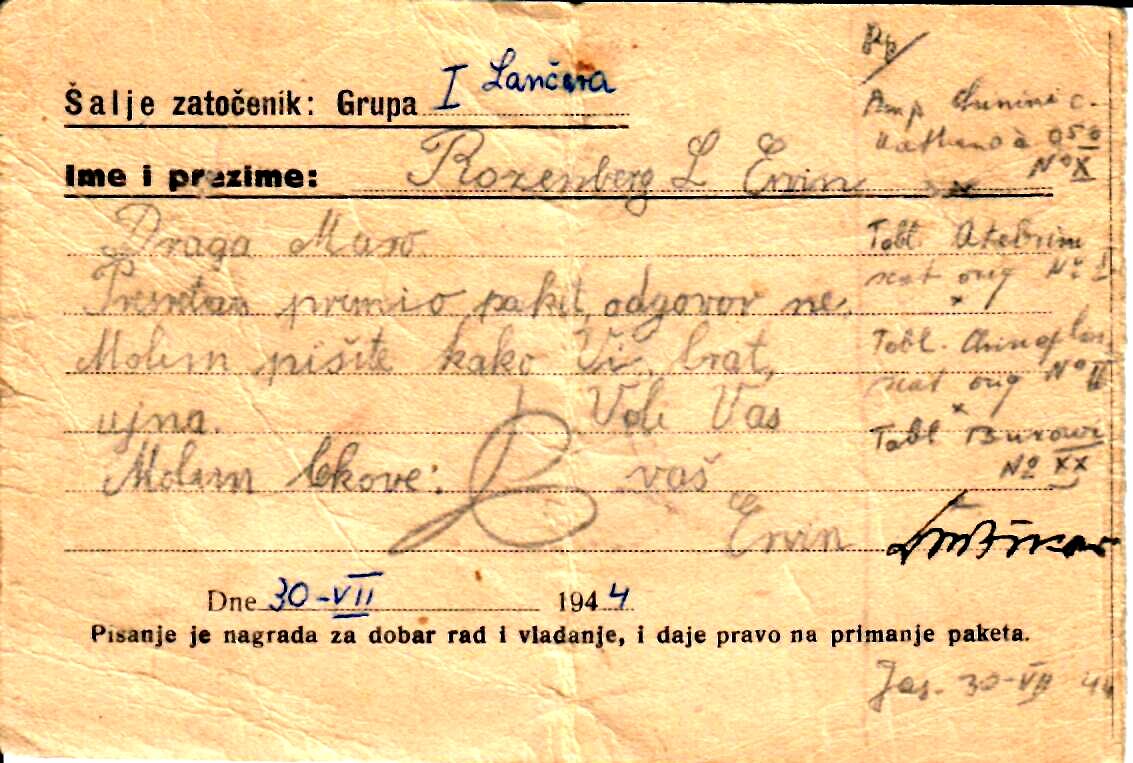 Šalje zatočenik: Grupa I Lančara
Ime i prezime: Rozenberg L Ervin
Draga Maro.
primio paket, odgovor ne.
Molim pišite kako Vi, brat,
ujna. Voli Vas
Molim lekove: vaš
Ervin
Dne 30-VII 1944
Pisanje je nagrada za dobar rad i vladanje, i daje pravo na primanje paketa.
Amp Chinini c.
N⁰ X
Tabl. Atebrini
scat orig N⁰ I
Tabl.
scat orig N⁰ II
Tabl
N⁰ XX
Jas. 30-VII 44